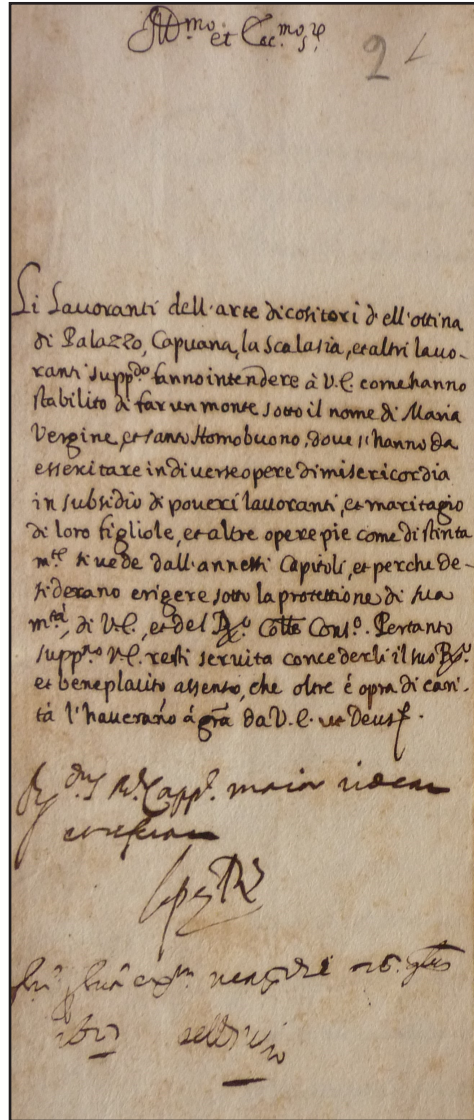 Ill.mo et Ecc.mo S.r
2
Li Lauoranti dell'arte di cositori d'ell'ottina
di Palazzo, Capuana, la Scalasia, et altri lauo-
ranti supp.do fanno intendere à V.E. come hanno
stabilito di far un monte sotto il nome di Maria
Vergine, et santo Homobuono, doue s'hanno da
esseritare in diuerse opere di misericordia
in subsidio di poueri lauoranti, et maritagio
di loro figliole, et altre opere pie come distinta
m.te si uede dall'annessi Capitoli, et perche de-
siderano erigere sotto la protettione di sua
m.tà, di V.E., et del R.o Coll.e Cons.o. Pertanto
supp.no V.E. resti seruita concederli il suo R.o
et beneplacito assenso, che oltre é opra di cari-
tà l'hauerano á gra da V.E. ut Deus
R.dus R. Capp.s maior uideat
et referat